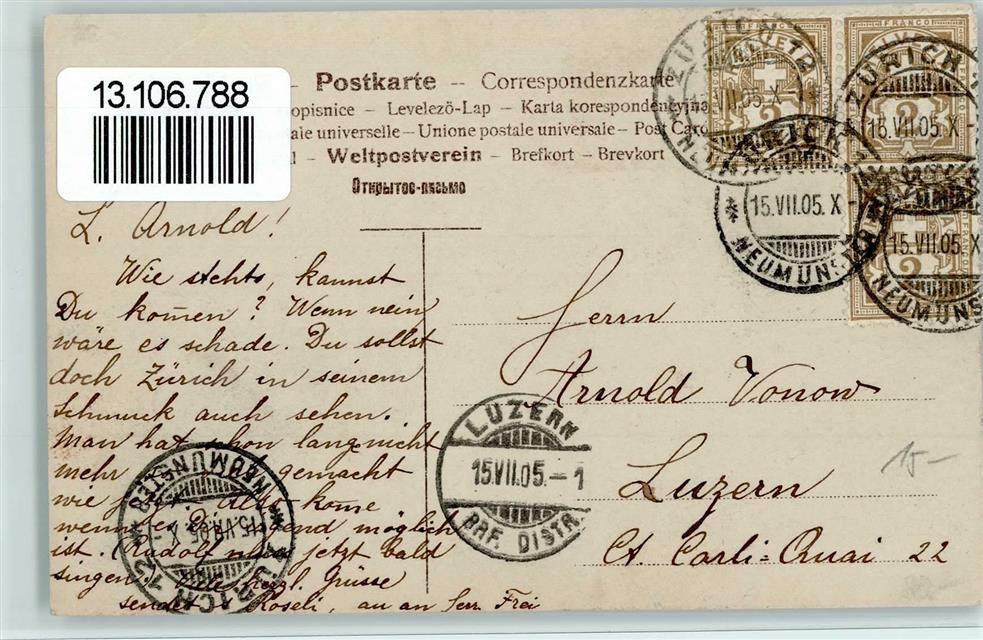 13.106.788
Postkarte – Correspondenzkarte
opisnice – Levelező-Lap – Karta korespondencyjna
ale universelle – Unione postale universale – Post Card
Weltpostverein – Brefkort – Brevkort
Открытое-письмо
FRANCO
HELVETIA
2
2
2
ZÜRICH 12
VII.05.X
NEUMÜNSTER
ZÜRICH 12
15.VII.05.X
15.VII.05.X
NEUMÜNSTER
15.VII.05.X
NEUMÜNS
L. Arnold!
Wie stehts, kannst
Du kom̄en? Wenn nein
wäre es schade. Du sollst
doch Zürich in seinem
Schmuck auch sehen.
Man hat schon lang nicht
mehr gemacht
wie kom̄e
wenn möglich
ist. (Rudolf muss jetzt bald
singen. Viele herzl. Grüsse
sendet Roseli, au an Herr Frei
Herrn
Arnold Vonow
Luzern
Ct. Carli-Quai 22
LUZERN
15.VII.05.–1
BRF. DISTR.
15–
ZÜRICH 12
15.VII.05.X
NEUMÜNSTER